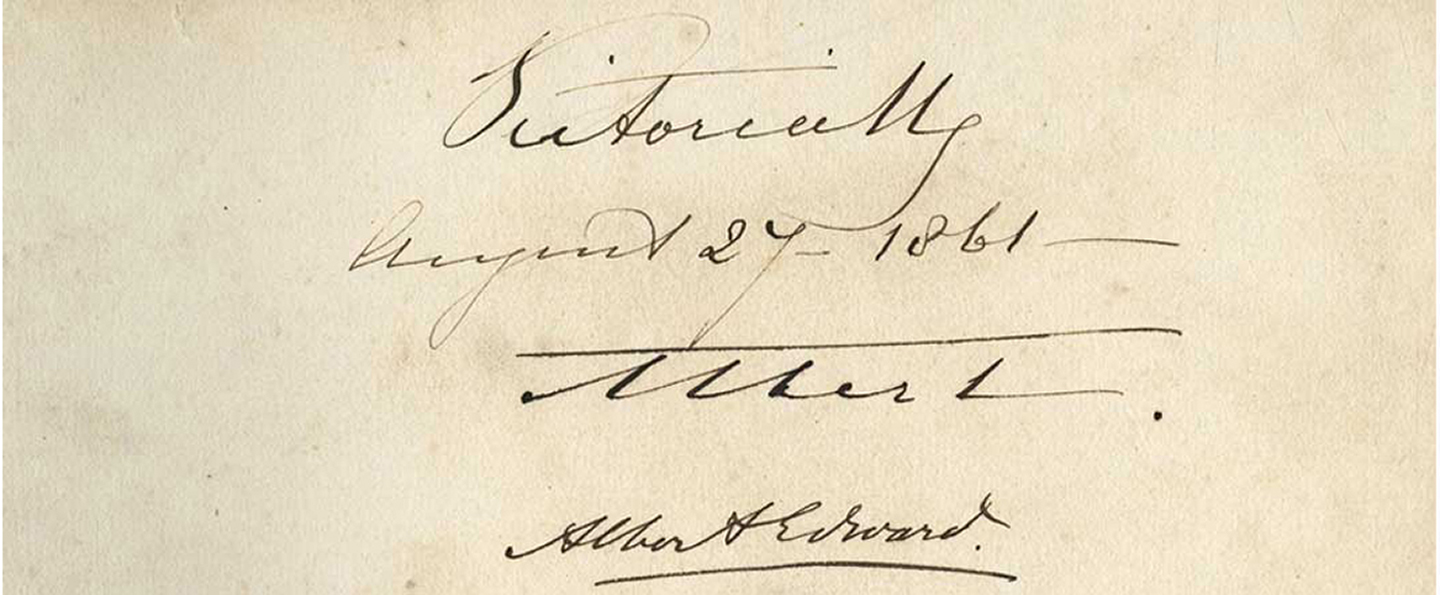 Victoria Rg
August 27 - 1861 —
Albert.
Albert Edward.